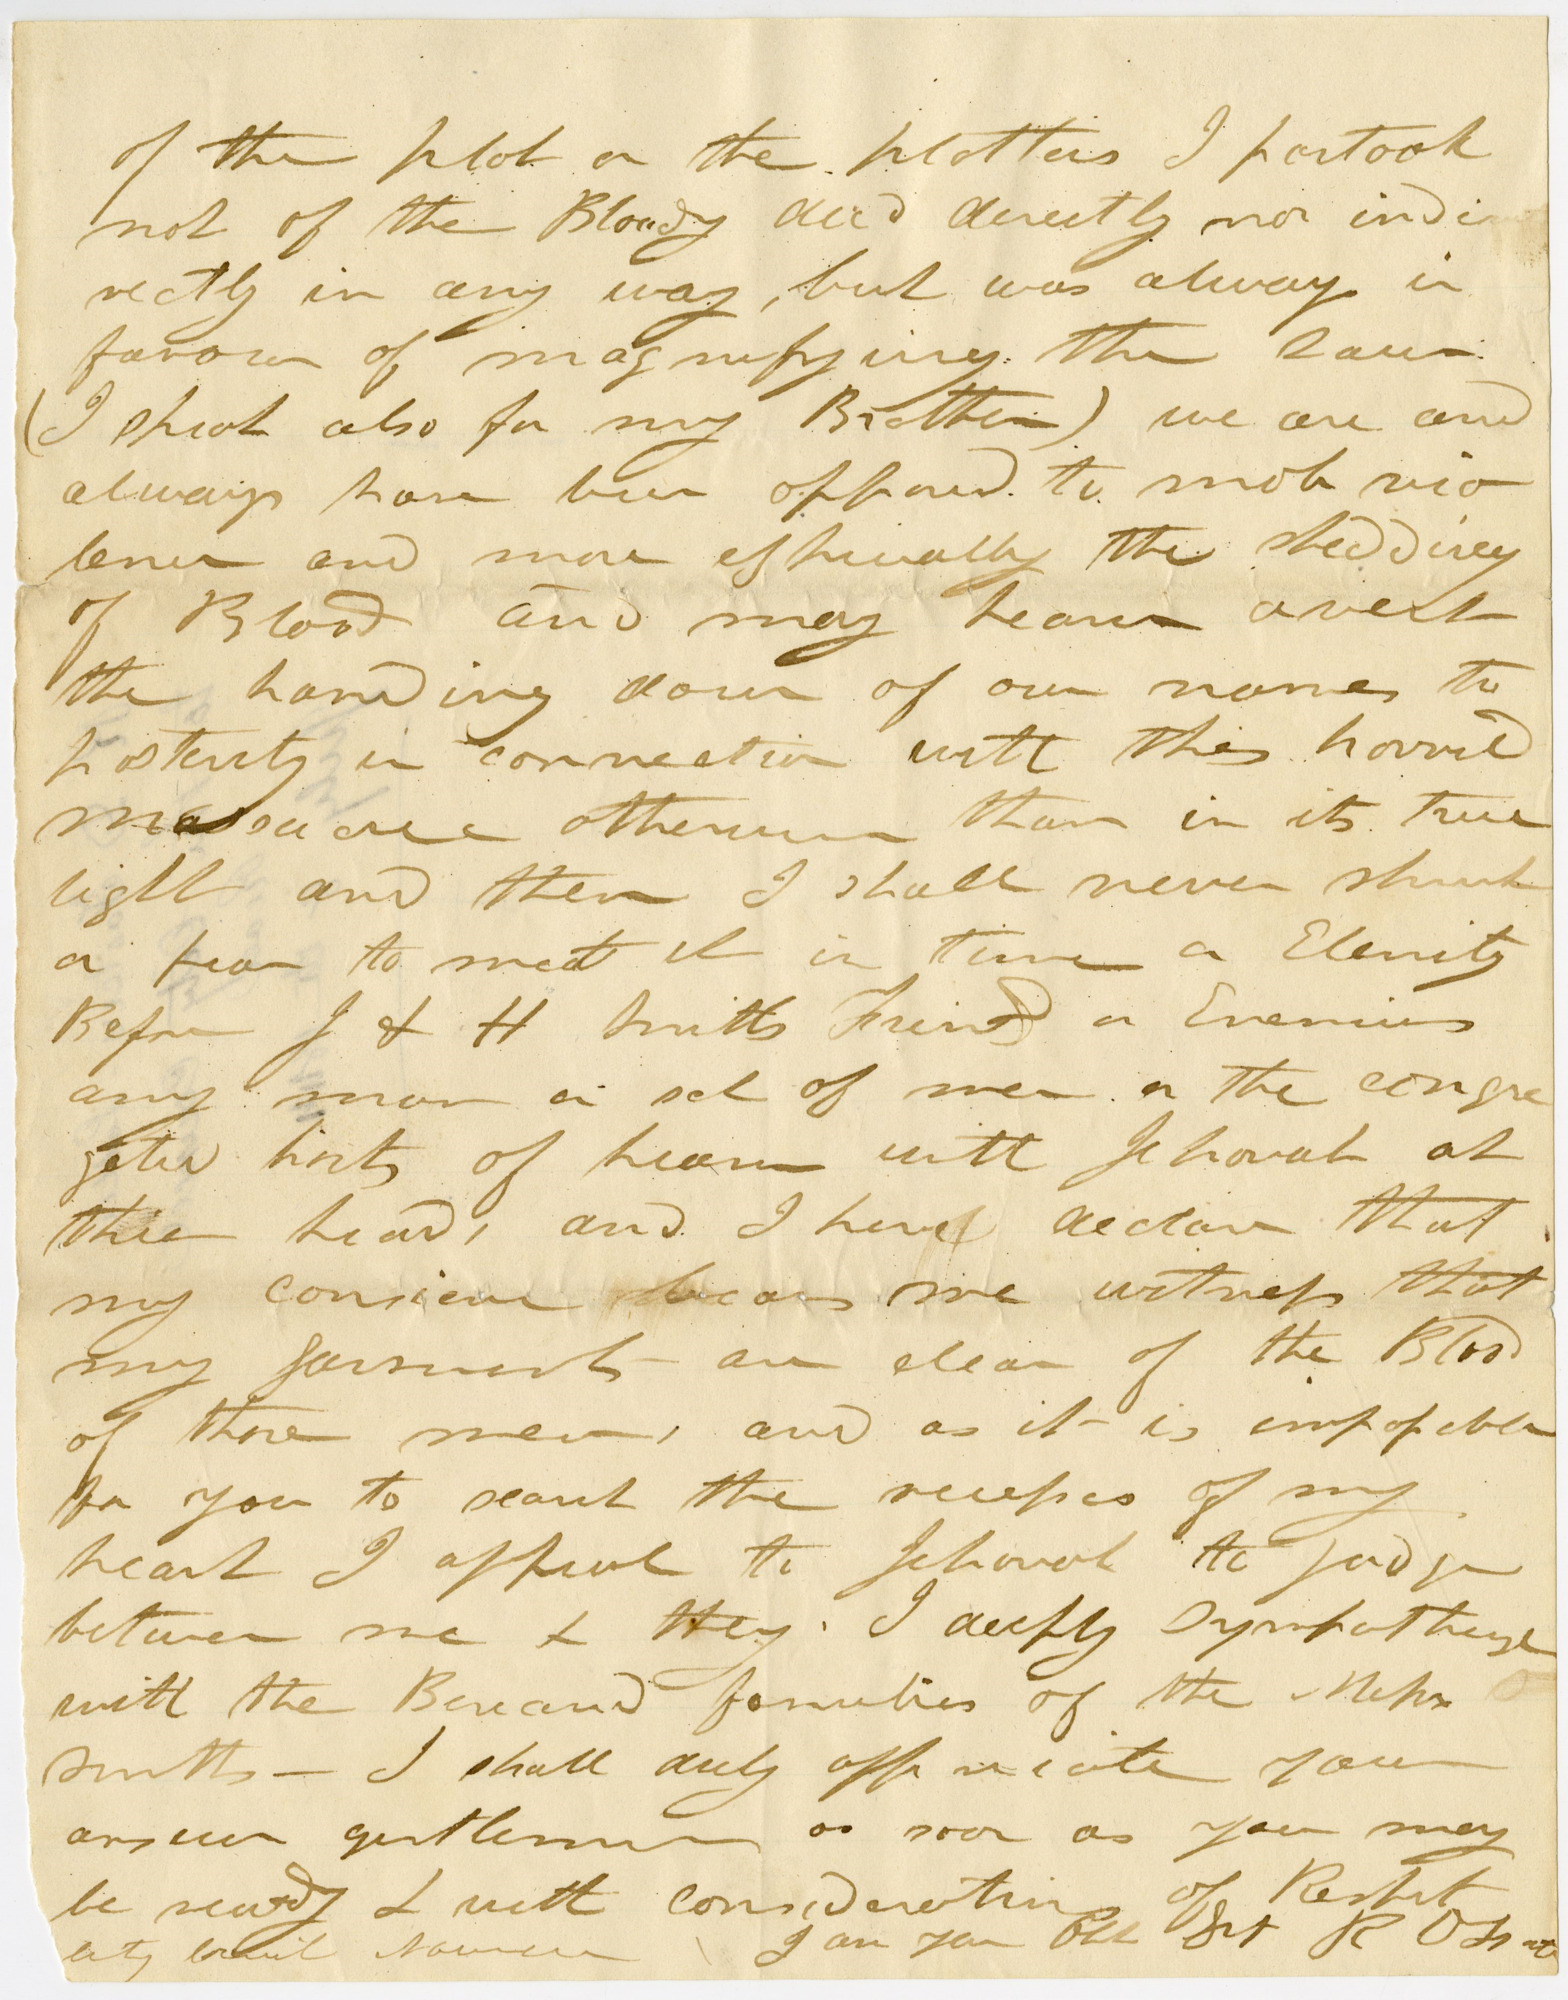 of the plot or the plotters I partook
not of the Bloody deed directly nor indi
rectly in any way, but was always in
favour of magnifying the Law
(I speak also for my Brother) we are and
always have been opposed to mob vio
lence and more esphecially the shedding
of Blood and may heaven avert
the handing down of our names to
posterity in connection with this horrid
massacree otherwise than in its true
light and then I shall never shrink
or fear to meet it in time or Eternity
Before J & H Smiths Friends or Enemies
any man or set of men or the congre
gated hosts of heaven with Jehovah at
their head, and I here declare that
my consience bears me witness that
my garments are clean of the Blood
of those men, and as it is impossible
for you to search the recesses of my
heart I appeal to Jehovah to judge
between me & they. I deeply Sympathize
with the Bereaved families of the Messrs
Smiths — I shall duly appreciate your
answer gentlemen as soon as you may
be ready & with considerations of Respect
City Council Nauvoo I am your Obt Svt R D Foster